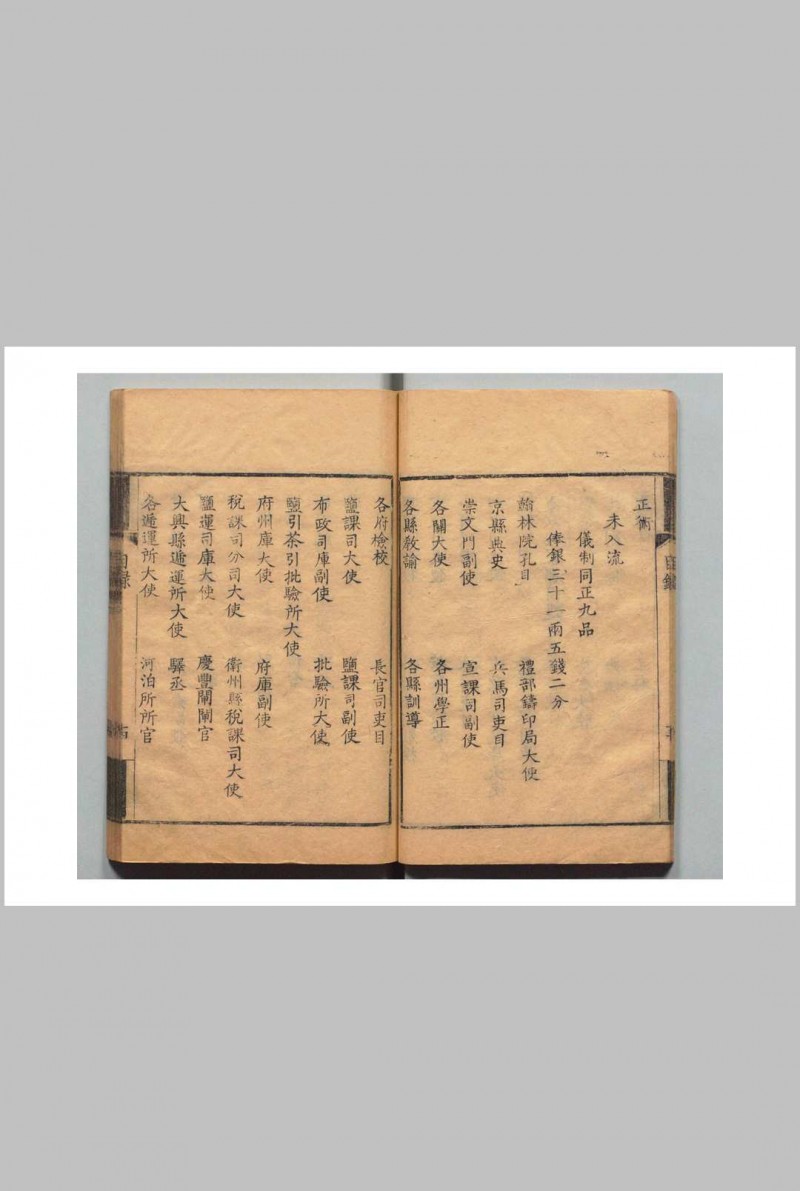 正術
未入流
儀制同正九品
俸銀三十一兩五錢二分
翰林院孔目 禮部鑄印局大使
京縣典史 兵馬司吏目
崇文門副使 宣課司副使
各關大使 各州學正
各縣教諭 各縣訓導
各府檢校 長官司吏目
鹽課司大使 鹽課司副使
布政司庫副使 批驗所大使
鹽引茶引批驗所大使
府州庫大使 府庫副使
稅課司分司大使 衛州縣稅課司大使
鹽運司庫大使 慶豐閘閘官
大興縣遞運所大使 驛丞
各遞運所大使 河泊所所官
目錄